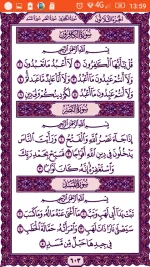 4G 13:59
الجزء الثلاثون
سورة الكافرون
بسم الله الرحمن الرحيم
قُلْ يَٰٓأَيُّهَا ٱلْكَٰفِرُونَ ١ لَآ أَعْبُدُ مَا تَعْبُدُونَ ٢
وَلَآ أَنتُمْ عَٰبِدُونَ مَآ أَعْبُدُ ٣ وَلَآ أَنَا۠ عَابِدٌ مَّا عَبَدتُّمْ ٤
وَلَآ أَنتُمْ عَٰبِدُونَ مَآ أَعْبُدُ ٥ لَكُمْ دِينُكُمْ وَلِىَ دِينِ ٦
سورة النصر
بسم الله الرحمن الرحيم
إِذَا جَآءَ نَصْرُ ٱللَّهِ وَٱلْفَتْحُ ١ وَرَأَيْتَ ٱلنَّاسَ
يَدْخُلُونَ فِى دِينِ ٱللَّهِ أَفْوَاجًا ٢ فَسَبِّحْ بِحَمْدِ رَبِّكَ
وَٱسْتَغْفِرْهُ إِنَّهُۥ كَانَ تَوَّابًۢا ٣
سورة المسد
بسم الله الرحمن الرحيم
تَبَّتْ يَدَآ أَبِى لَهَبٍ وَتَبَّ ١ مَآ أَغْنَىٰ عَنْهُ مَالُهُۥ وَمَا كَسَبَ ٢
سَيَصْلَىٰ نَارًا ذَاتَ لَهَبٍ ٣ وَٱمْرَأَتُهُۥ حَمَّالَةَ ٱلْحَطَبِ ٤
فِى جِيدِهَا حَبْلٌ مِّن مَّسَدٍۭ ٥
٦٠٣